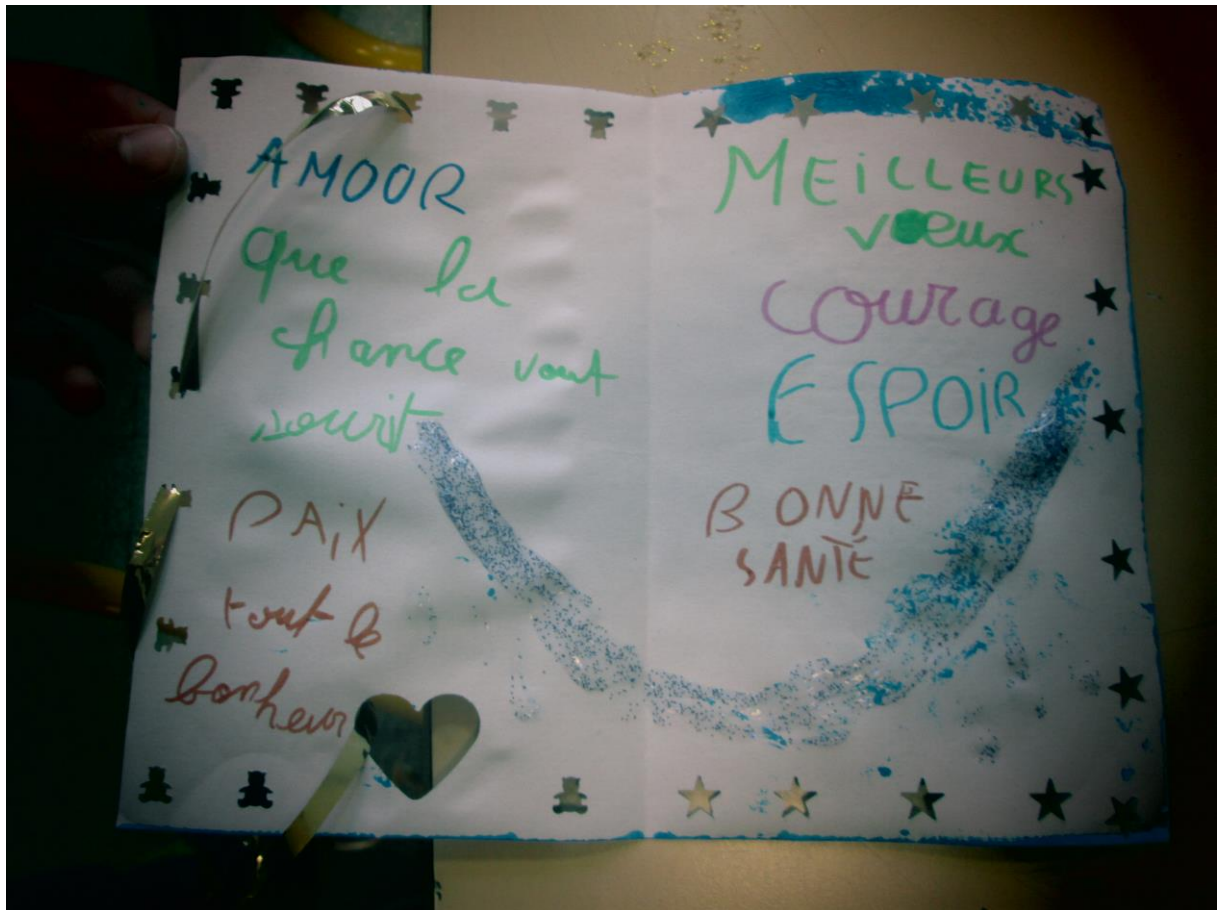 AMOUR
que la
chance vout
sourit
PAiX
tout le
bonheur
MEiLLEURS
vœux
courage
ESPOiR
BONNE
SANTÉ